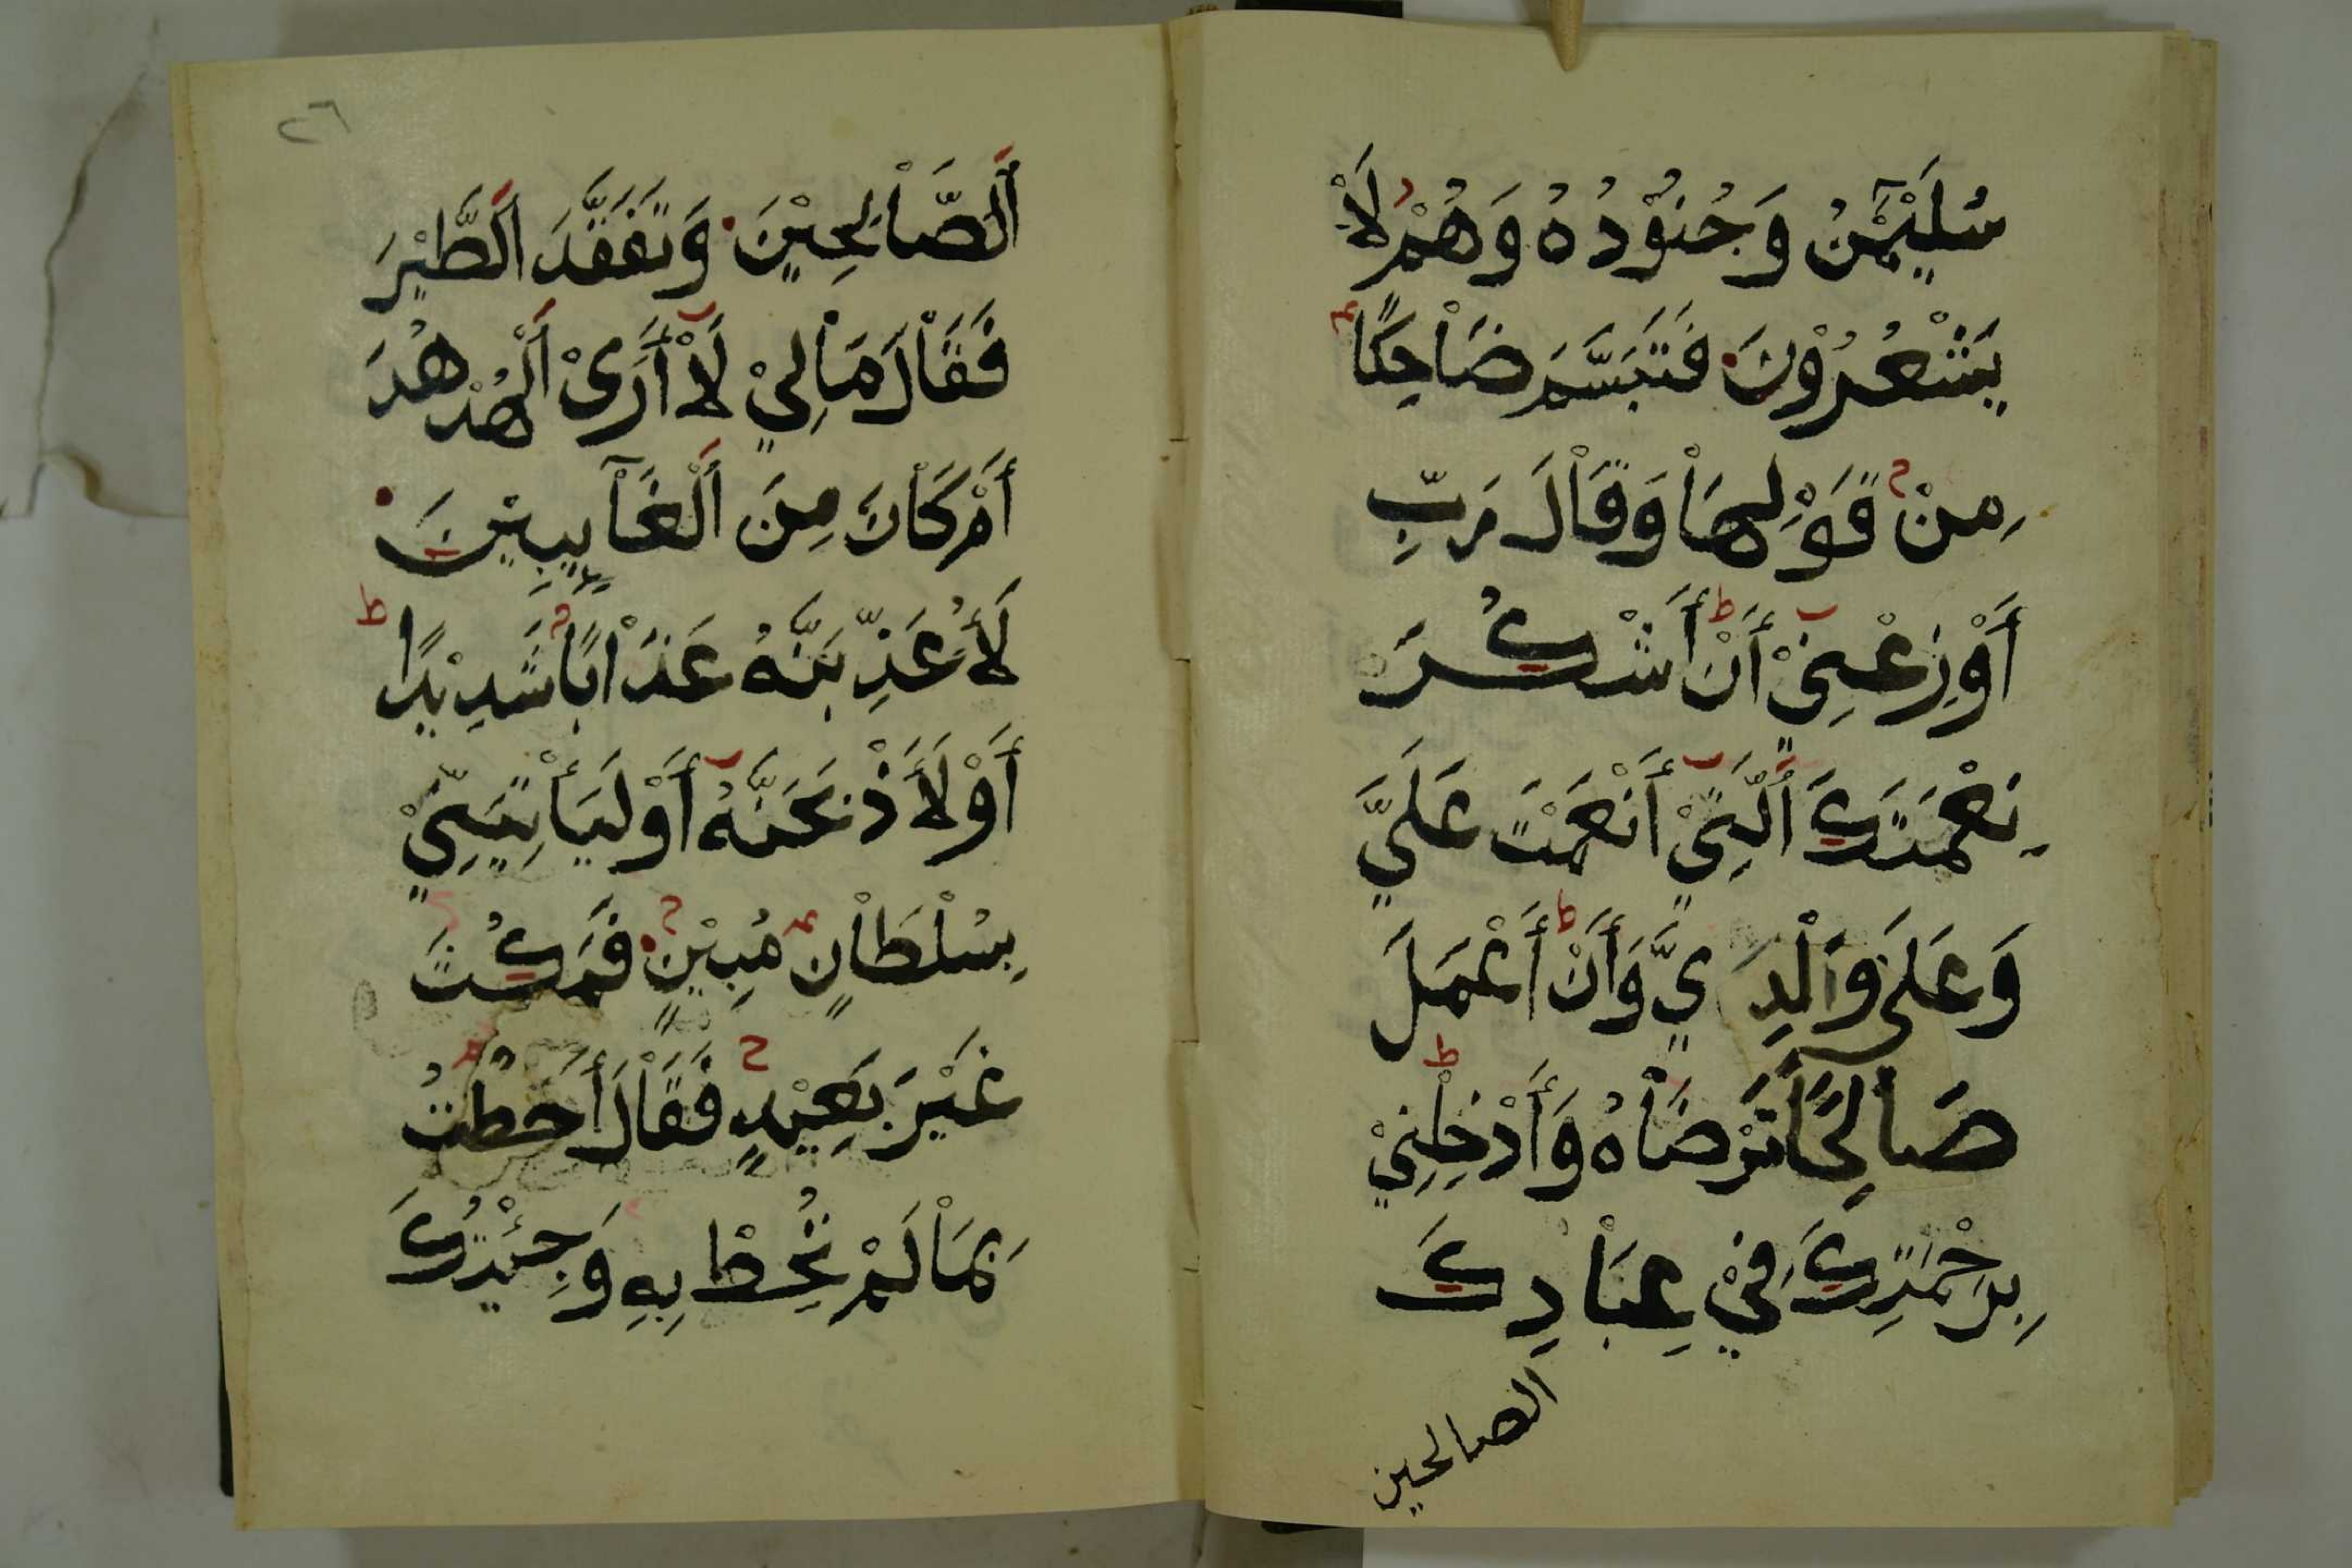 سُلَيْمٰنُ وَجُنُوْدُهُ وَهُمْ لَاْ
يَشْعُرُوْنَ فَتَبَسَّمَ ضَاْحِكًا
مِنْ قَوْلِهَاْ وَقَاْلَ رَبِّ
أَوْزِعْنِيْ أَنْ أَشْكُرَ
نِعْمَتَكَ اَلَّتِيْ أَنْعَمْتَ عَلَيَّ
وَعَلَى وَاْلِدَيَّ وَأَنْ أَعْمَلَ
صَاْلِحًا تَرْضَاْهُ وَأَدْخِلْنِيْ
بِرَحْمَتِكَ فِيْ عِبَاْدِكَ
الصالحين
٢٦
اَلصَّاْلِحِيْنَ وَتَفَقَّدَ اَلطَّيْرَ
فَقَاْلَ مَاْ لِيْ لَاْ أَرَىْ اَلْهُدْهُدَ
أَمْ كَاْنَ مِنَ اَلْغَاْيِبِيْنَ
لَأُعَذِّبَنَّهُ عَذَاْبًا شَدِيْدًا
أَوْ لَأَذْبَحَنَّهُ أَوْ لَيَأْتِيَنِّيْ
بِسُلْطَاْنٍ مُبِيْنٍ فَمَكُثَ
غَيْرَ بَعِيْدٍ فَقَاْلَ أَحَطْتُ
بِمَاْ لَمْ تُحِطْ بِهِ وَجِئْتُكَ